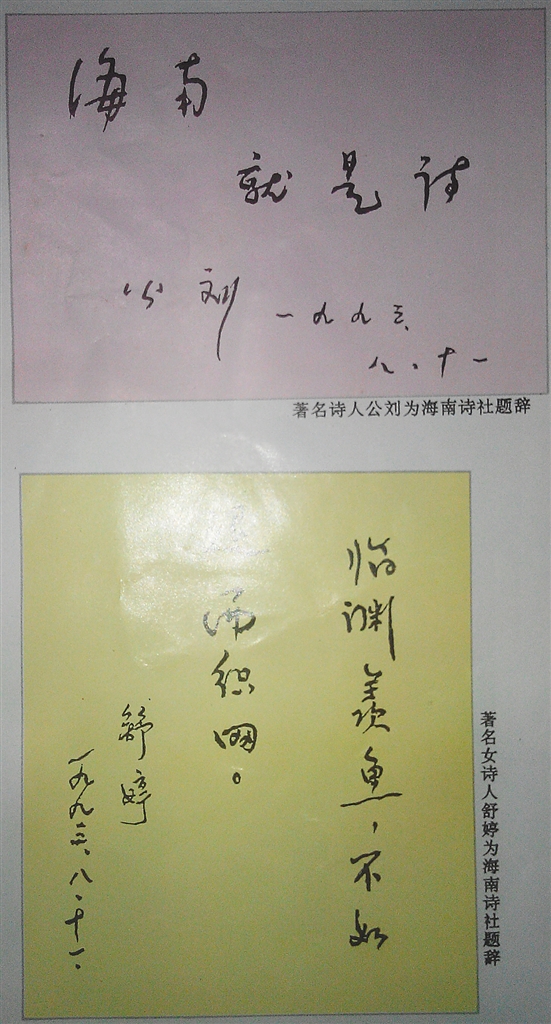 海南
就是诗
公刘 一九九三、
八、十一
著名诗人公刘为海南诗社题辞
临渊羡鱼，不如
退而织网。
舒婷
一九九三、八、十一、
著名女诗人舒婷为海南诗社题辞